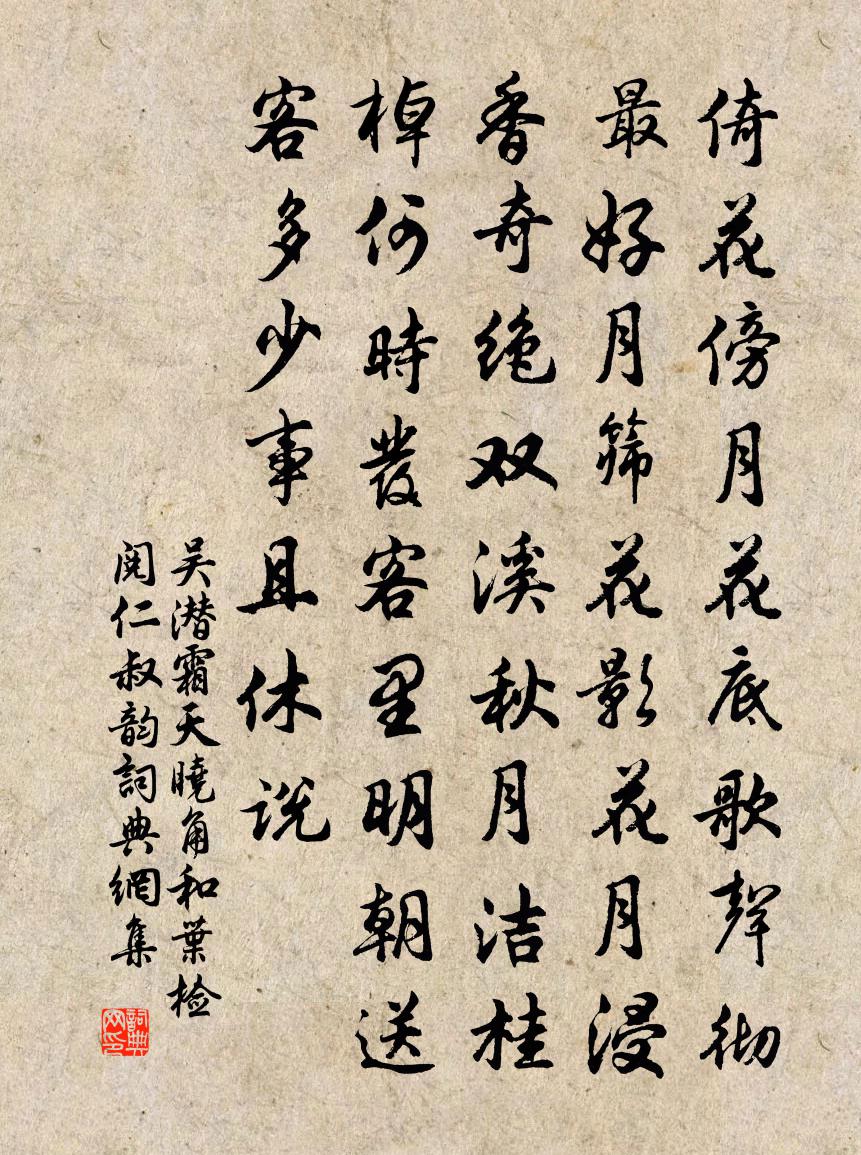 倚花傍月花底歌聲彻
最好月筛花影花月浸
香奇绝双溪秋月洁桂
棹何時發客里明朝送
客多少事且休说
吴潜霜天曉角和葉检
阅仁叔韵詞典網集
詞典网印